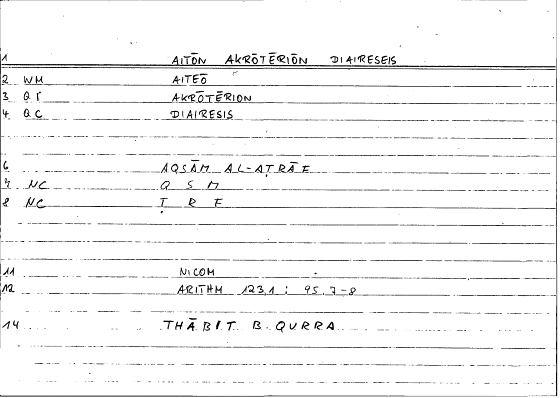 1 AITŌN AKRŌTĒRIŌN DIAIRESEIS
2 WM AITEŌ
3 QT AKRŌTĒRION
4 QC DIAIRESIS
6 AQSĀM AL-AṬRĀF
7 NC Q S M
8 NC Ṭ R F
11 NICOM
12 ARITHM 123,1 ; 95.7-8
14 THĀBIT B. QURRA